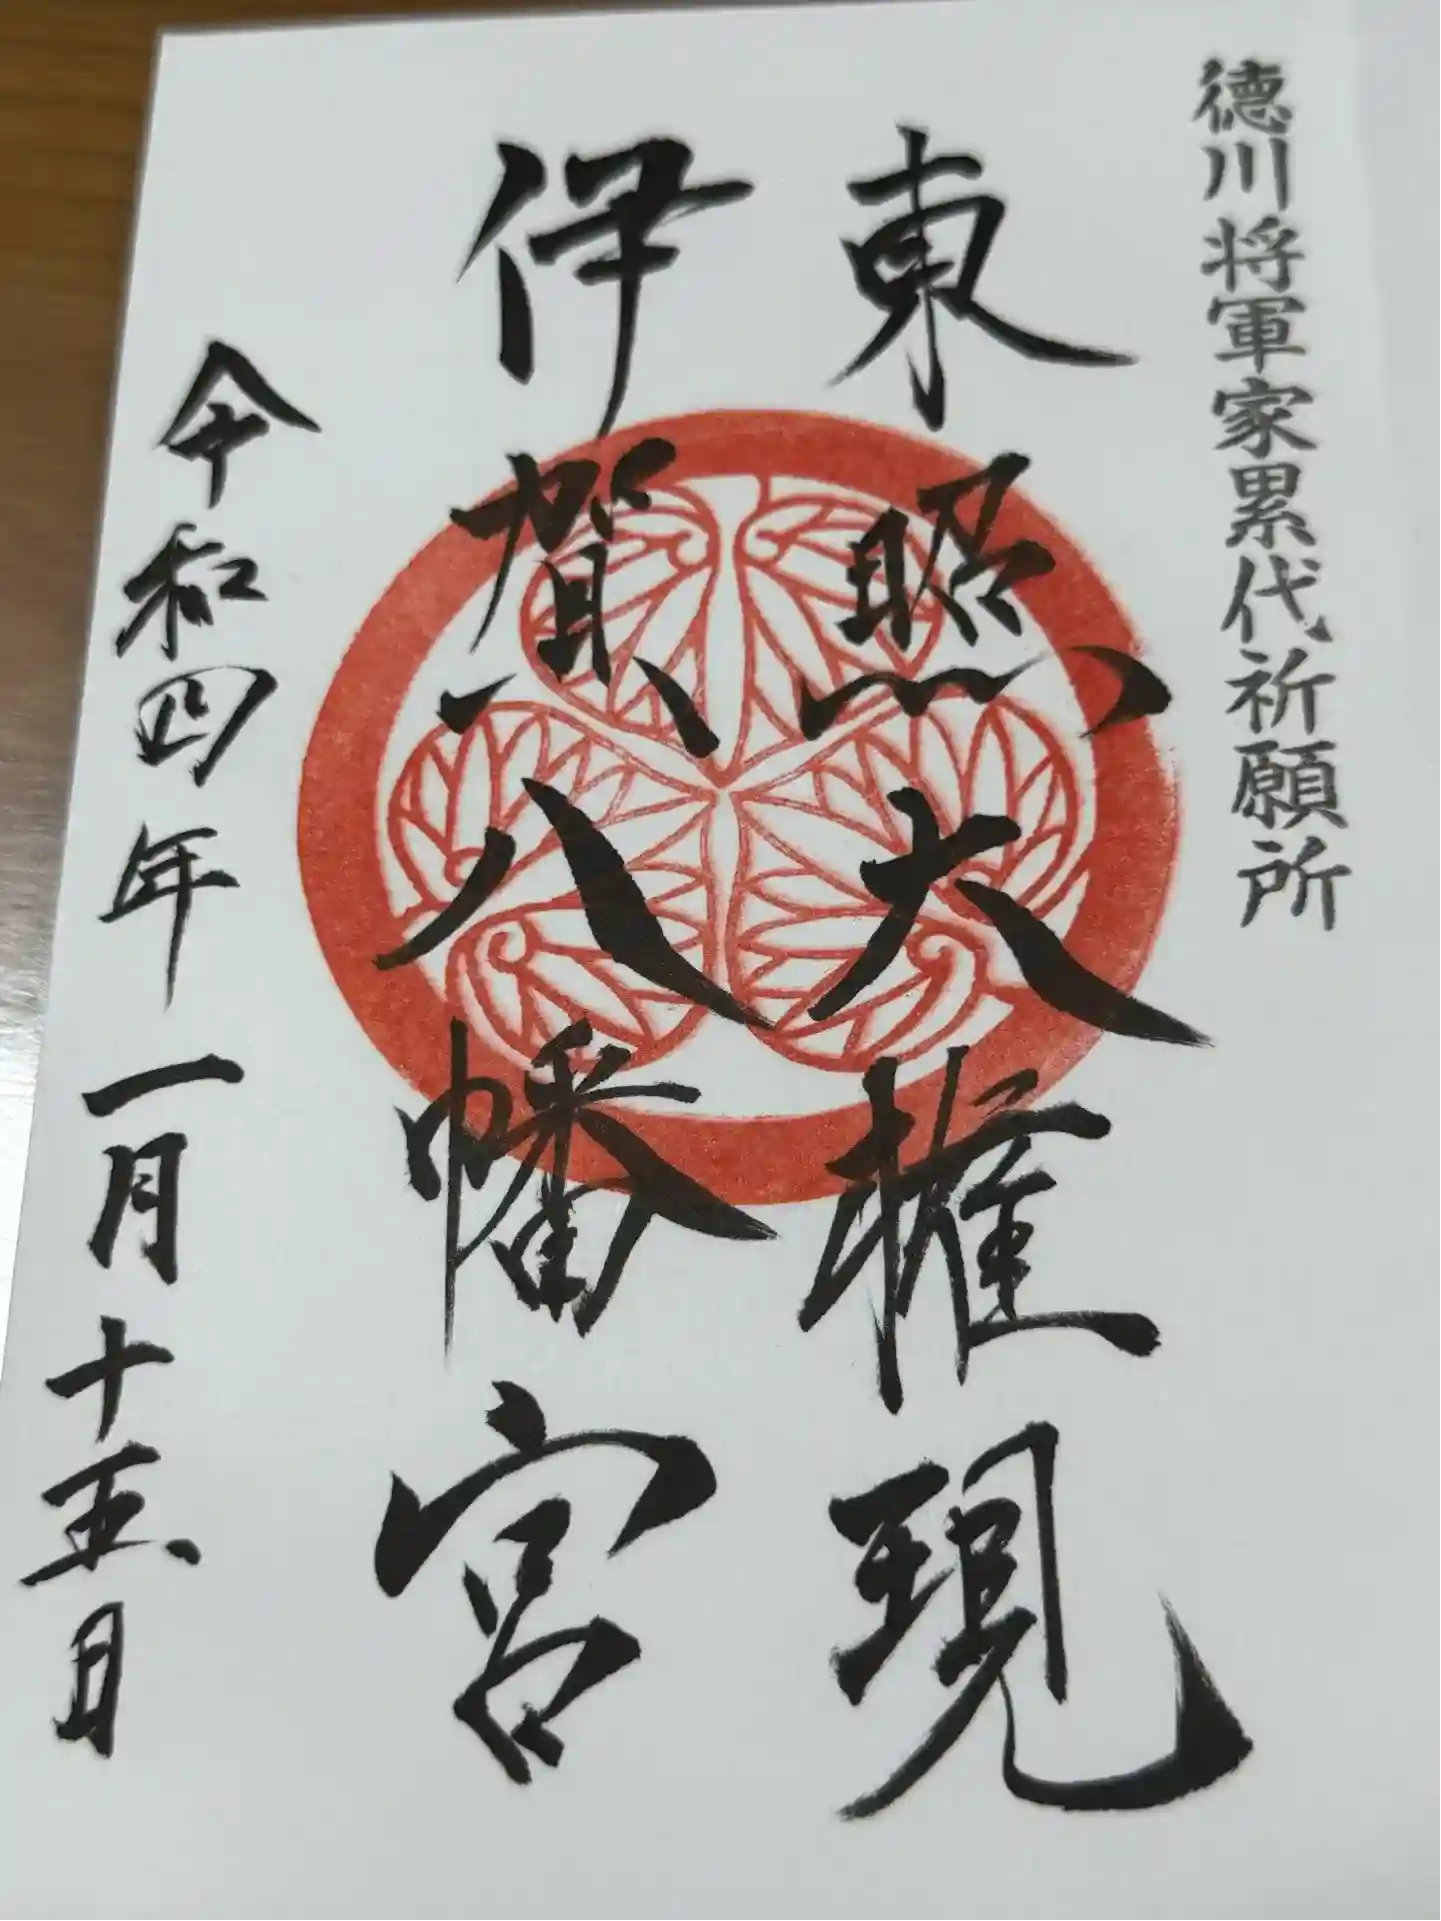 徳川将軍家累代祈願所
東照大権現
伊賀八幡宮
令和四年一月十五日